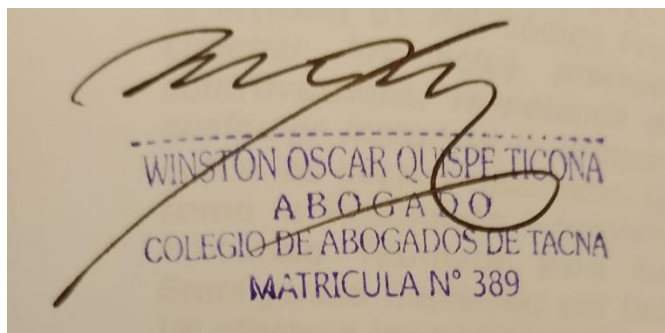 WINSTON OSCAR QUISPE TICONA
ABOGADO
COLEGIO DE ABOGADOS DE TACNA
MATRICULA N° 389